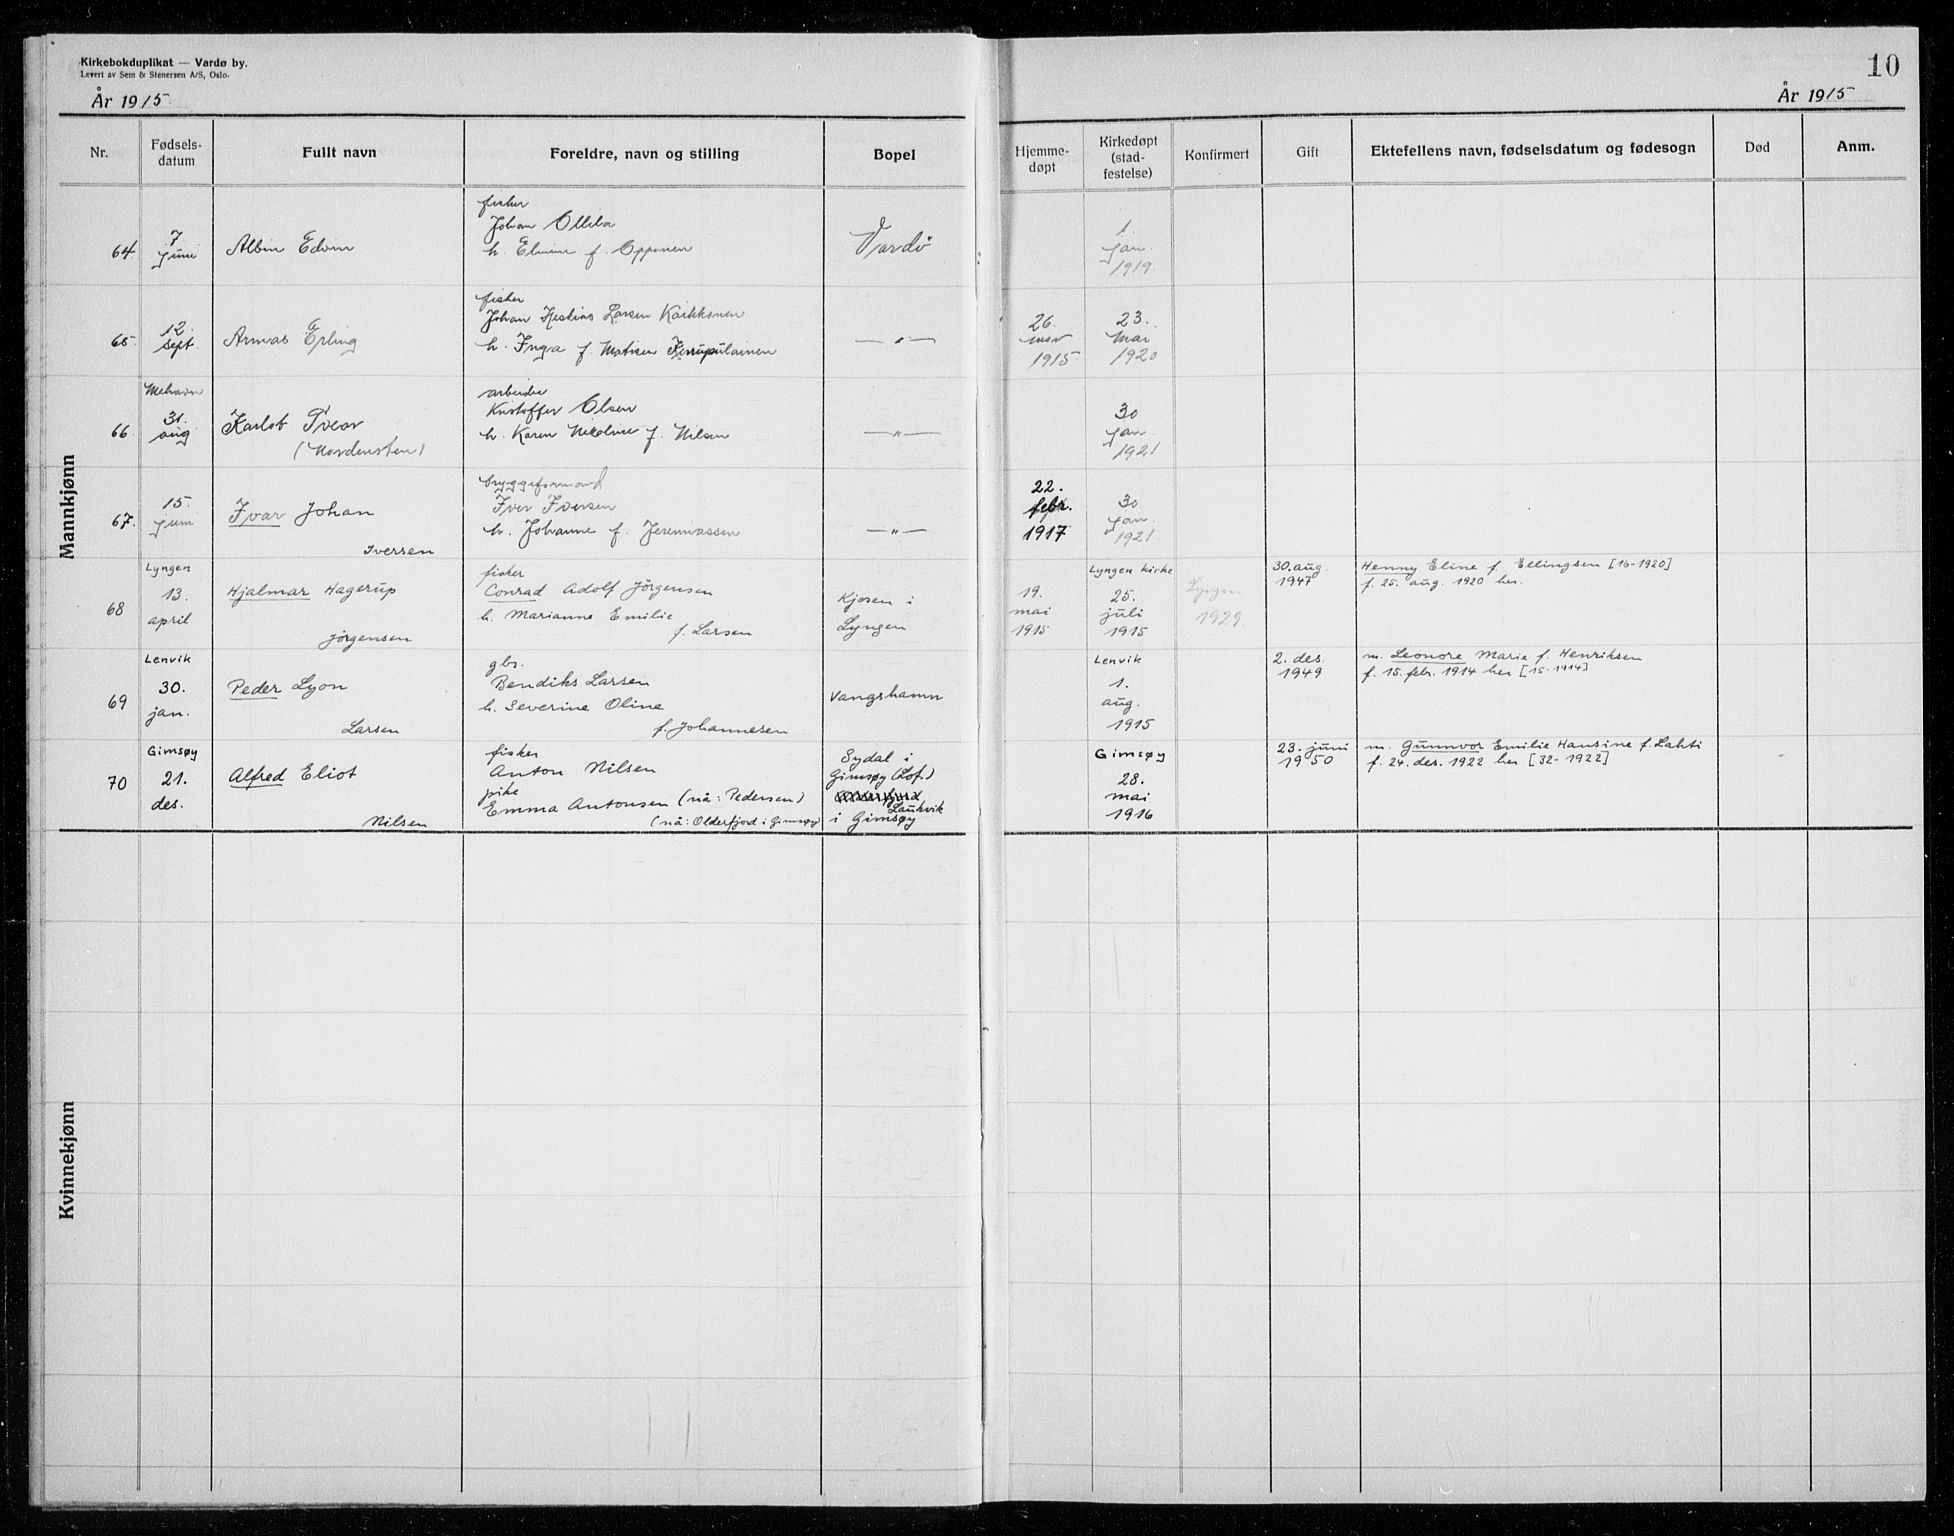 Kirkebokduplikat — Vardø by.
Levert av Sem & Stenersen A/S, Oslo.
År 1915
10
År 1915
Nr.
Fødsels-
datum
Fullt navn
Foreldre, navn og stilling
Bopel
Hjemme-
døpt
Kirkedøpt
(stad-
festelse)
Konfirmert
Gift
Ektefellens navn, fødselsdatum og fødesogn
Død
Anm.
Mannkjønn
64
7
juni
Albin Edvin
fisker
Johan Ollila
h. Elmine f. Opponen
Vardø
1.
jan.
1919.
65.
12.
sept.
Armas Erling
fisker
Johan Larsen
h. Inga f. Matisen
— " —
26.
nov
1915.
23.
Mai
1920
66.
Mehavn
31.
aug
Karlot Tvear
(Nordensten)
arbeider
Kristoffer Olsen
h. Karen Nikoline f. Nilsen
— " —
30
jan.
1921.
67.
15.
juni
Ivar Johan
Iversen
bryggeformand
Iver Iversen
h. Johanne f. Jeremiassen
— " —
22.
febr.
1917
30
jan.
1921.
68
Lyngen
13.
april
Hjalmar Hagerup
Jörgensen
fisker
Conrad Adolf Jörgensen
h. Marianne Emilie
f. Larsen
Kjosen i
Lyngen
19.
mai
1915
Lyngen kirke
25.
juli
1915
Lyngen
1929.
30. aug.
1947
Henny Eline f. Ellingsen [16-1920]
f. 25. aug. 1920 her.
69
Lenvik
30.
jan.
Peder Lyon
Larsen
gbr.
Bendiks Larsen
h. Severine Oline
f. Johannesen
Vangshamn
Lenvik
1.
aug.
1915
2. des.
1949
m. Leonore Marie f. Henriksen
f. 15. febr. 1914 her [15-1914]
70
Gimsøy
21.
des.
Alfred Eliot
Nilsen
fisker
Anton Nilsen
pike
Emma Antonsen (nå: Pedersen)
(nå: Olderfjord i Gimsøy)
Sydal i
Gimsøy (Lof.)
Laukvik
i Gimsøy
Gimsøy
28.
mai
1916
23. juni
1950
m. Gunnvor Emilie Hansine f. Lahti
f. 24. des. 1922 her [32-1922]
Kvinnekjønn